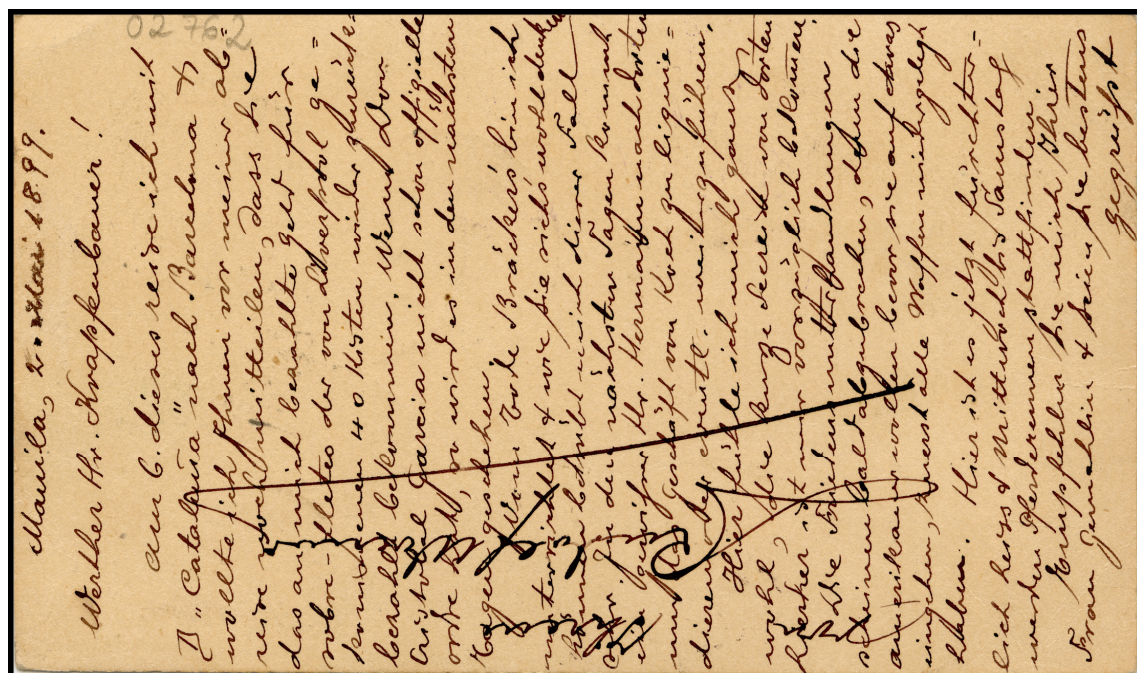 02762
Manila, 2. Mai 1899.
Werther Hr. Krapfenbauer!
am 6. dieses reise ich mit
"Cataluña" nach Barcelona &
wollte ich Ihnen vor meiner ab=
reise noch mitteilen, dass Sie
das an mich bezahlte Geld für
von Liverpool ge=
kommenen 40 Kisten wieder zurück=
bezahlt bekommen. Wenn Don
Cristoval Garcia nicht schon offizielle
ordre hat, so wird es in den nächsten
Tagen geschehen.
Von Tode Bräckers bin ich
unterrichtet & wie Sie sich wohl denken
können betrübt mich dieser Fall
In den nächsten Tagen kommt
ein gewisser Hr. Hermann nach dorten
um Geschäft von Koch zu liquie=
dieren oder event. weiterzuführen.
Hier fühle ich mich ganz
wohl, die kurze Zeit von dorten
hierher ist mir vorzüglich bekommen.
Die Friedensunterhandlungen
scheinen bald abzubrechen, denn die
amerikaner wollen bevor sie auf etwas
eingehen, zuerst alle Waffen niedergelegt
haben. Hier ist es jetzt fürchter=
lich heiss & Mittwoch bis Samstag
werden Pferderennen stattfinden
Empfehlen Sie mich Ihrer
Frau Gemahlin & seien Sie bestens
gegrüsst